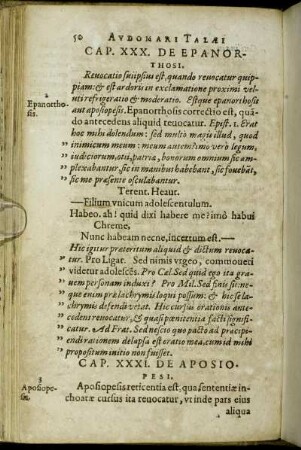 50 AVDOMARI TALÆI
CAP. XXX. DE EPANOR-
THOSI.
Reuocatio sui ipsius est, quando reuocatur quip-
piam: & est ardoris in exclamatione proximi vel-
uti refrigeratio & moderatio. Estque epanorthosis
a
Epanortho-
sis.
aut aposiopesis. Epanorthosis correctio est, quã-
do antecedens aliquid reuocatur. Epist. 1. Erat
hoc mihi dolendum: sed multò magis illud, quod
inimicum meum: meum autem? imò verò legum,
iudiciorum, otij, patriæ, bonorum omnium sic am-
plexabantur, sic in manibus habebant, sic fouebãt,
sic me præsente osculabantur.
Terent. Heaut.
—Filium vnicum adolescentulum.
Habeo. ah! quid dixi habere me? imò habui
Chreme,
Nunc habeam necne, incertum est.—
Hic igitur præteritum aliquid & dictum reuoca-
tur. Pro Ligar. Sed nimis vrgeo, commoueri
videtur adolescẽs. Pro Cæl. Sed quid ego ita gra-
uem personam induxi? Pro Mil. Sed finis sit: ne-
que enim præ lachrymis loqui possum: & hic se la-
chrymis defendi vetat. Hic cursus orationis ante-
cedens reuocatur, & quasi pœnitentia facti signifi-
catur. Ad Frat. Sed nescio quo pacto ad præcipi-
endi rationem delapsa est oratio mea, cum id mihi
propositum initio non fuisset.
CAP. XXXI. DE APOSIO-
PESI.
Aposiope-
sis.
Aposiopesis reticentia est, qua sententiæ in-
choatæ cursus ita reuocatur, vt inde pars eius
aliqua